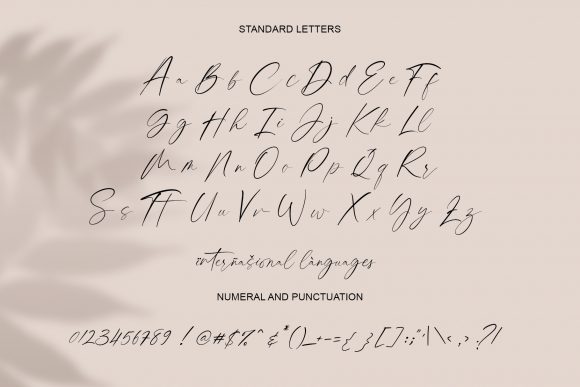 STANDARD LETTERS
A a B b C c D d E e F f
G g H h I i J j K k L l
M m N n O o P p Q q R r
S s T t U u V v W w X x Y y Z z
ïnterñaṣional lànguages
NUMERAL AND PUNCTUATION
0123456789 ! @#$%^ &*()_+-={ }[]:;"'|\<,>.?/